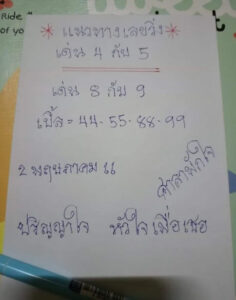 Ride
of yo
* แนวทางเลขวิ่ง *
เด่น 4 กับ 5
เด่น 8 กับ 9
เบิ้ล = 44-55-88-99
2 พฤษภาคม
ศาลาพักใจ
ปริญญาใจ หัวใจเพื่อเธอ